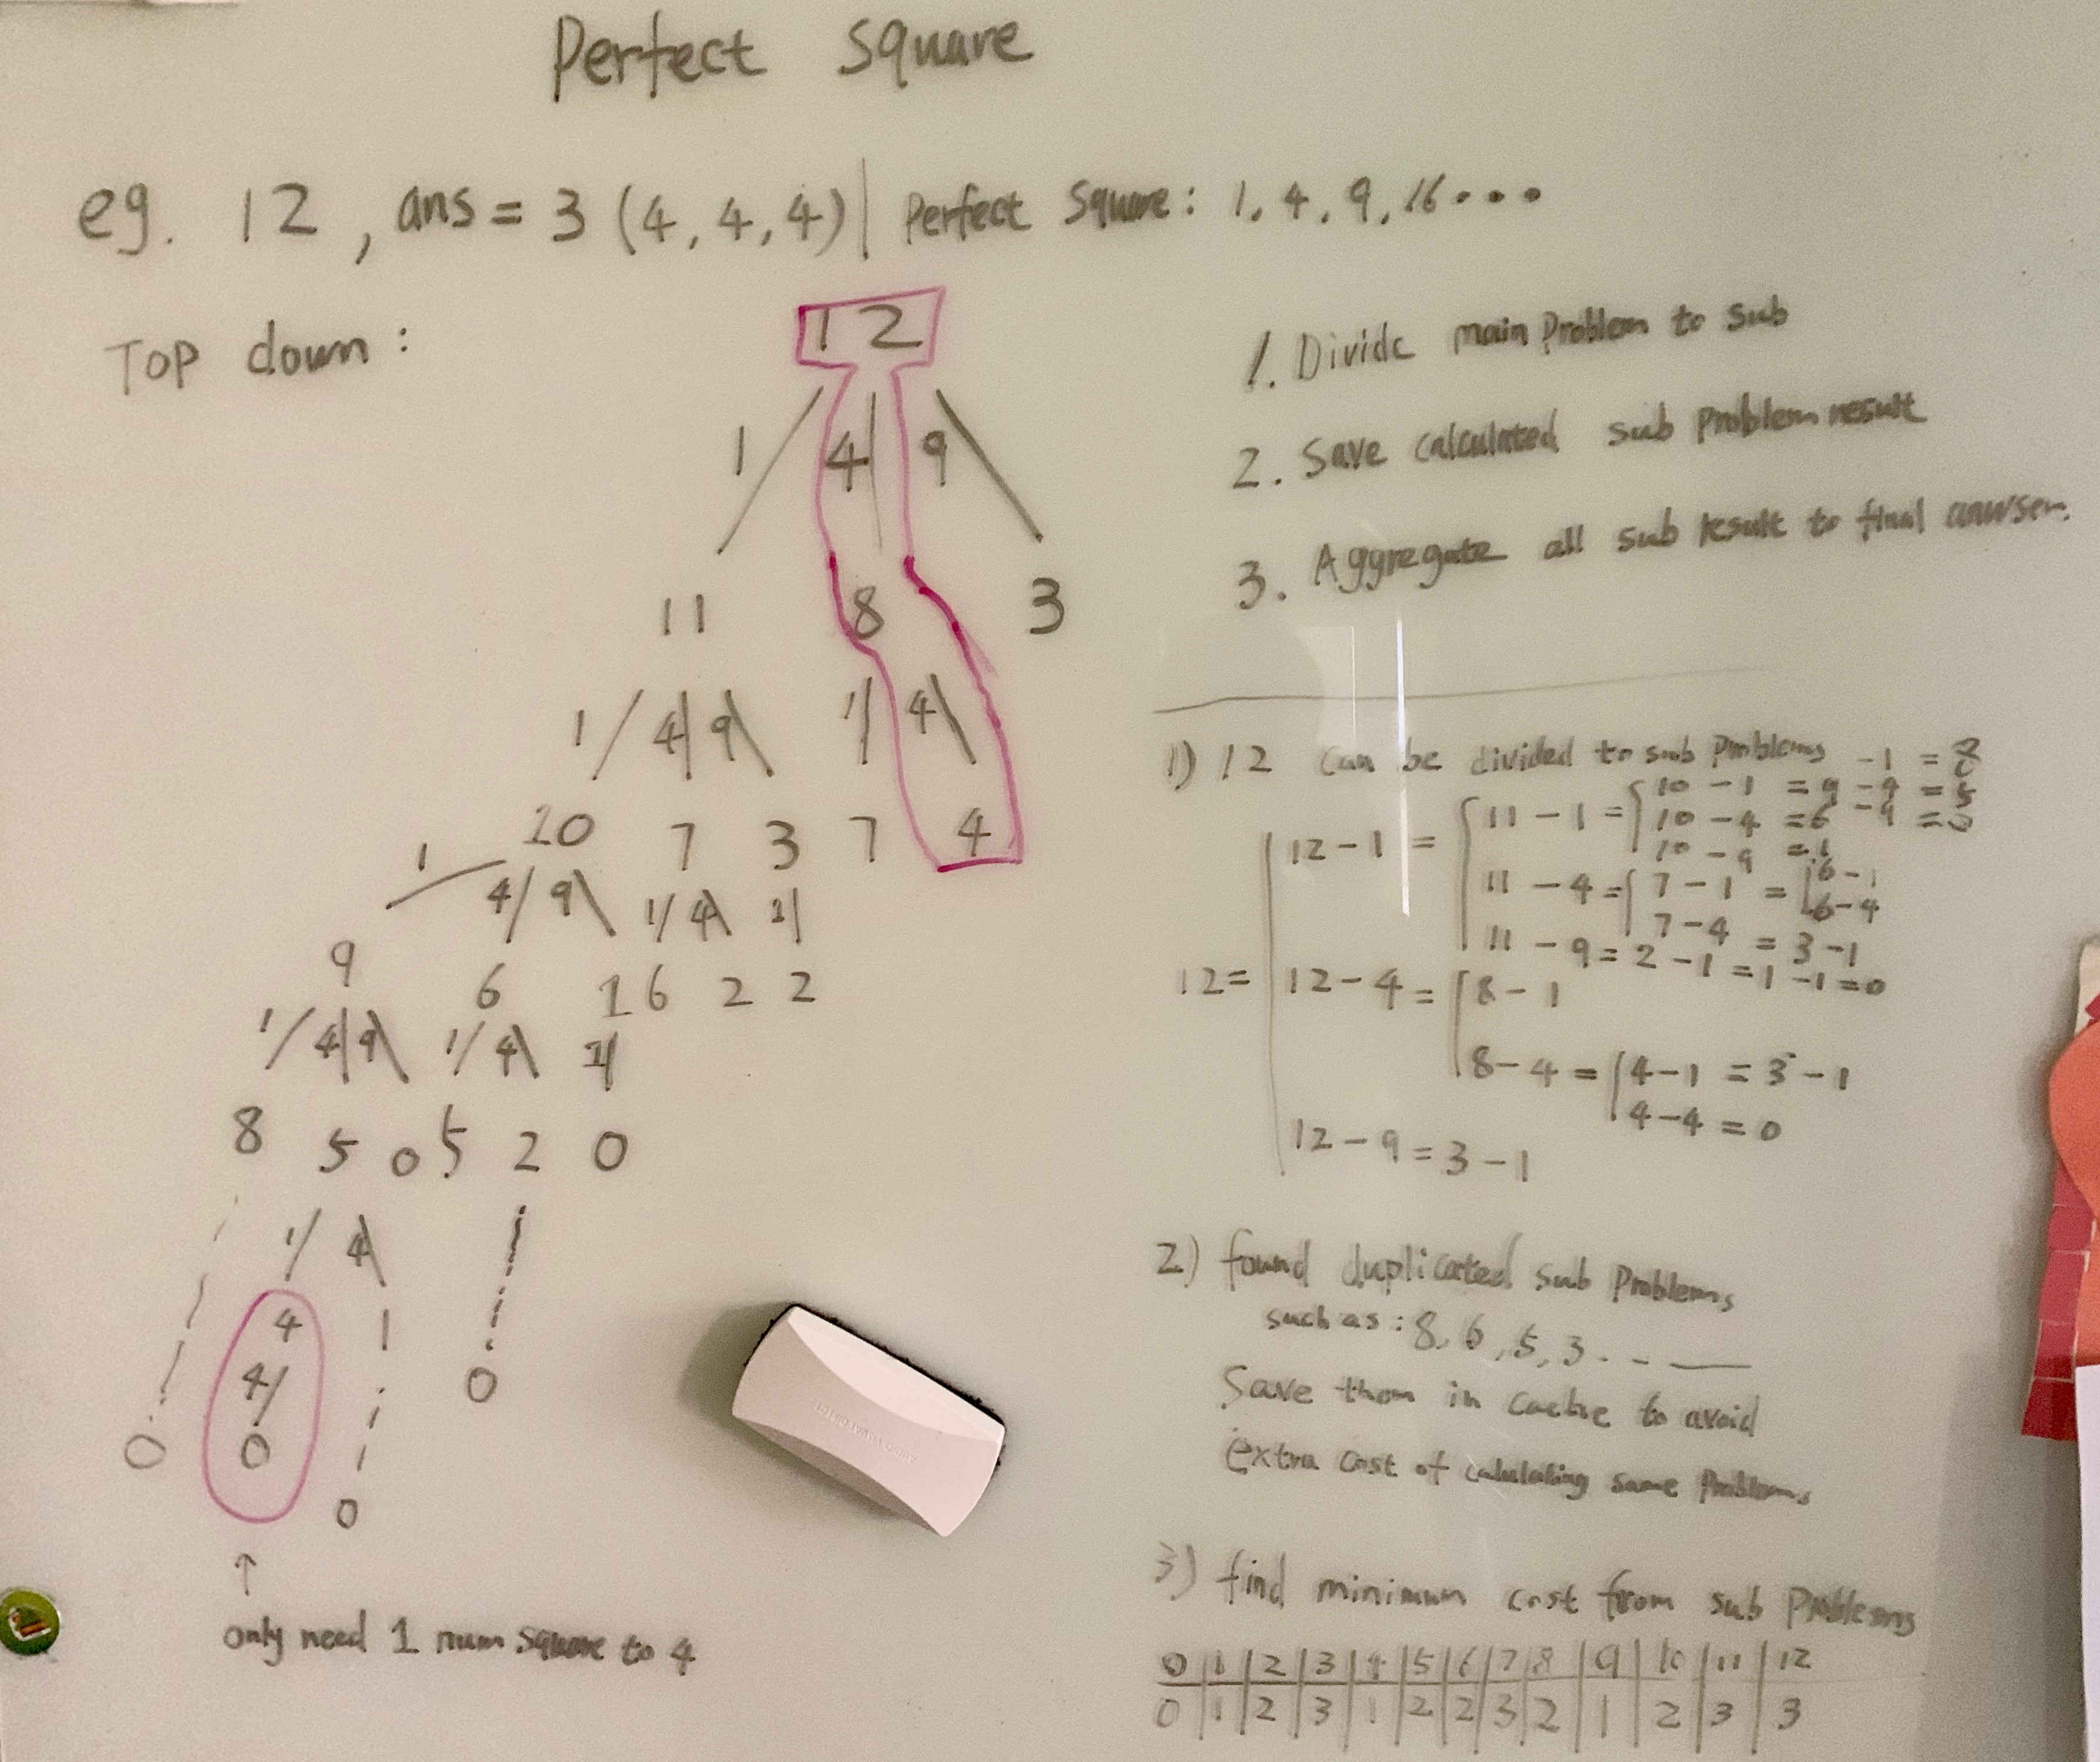 Perfect Square
eg. 12, ans = 3 (4, 4, 4) | Perfect Square: 1, 4, 9, 16...
Top down:
12
1 4 9
11 8 3
1 4 9 1 4
10 7 3 7 4
1 4 9 1 4 1
9 6 1 6 2 2
1 4 9 1 4 1
8 5 0 5 2 0
1 4
4 1
4
0 0 0 0
↑
only need 1 num square to 4
1. Divide main Problem to sub
2. Save calculated sub Problem result
3. Aggregate all sub result to final
1) 12 can be divided to sub Problems
12 =
12 - 1 =
11 - 1 =
10 - 1 = 9
- 1 = 8
- 4 = 5
- 9 = 0
10 - 4 = 6
10 - 9 = 1
11 - 4 =
7 - 1 =
6 - 1
6 - 4
7 - 4 = 3 - 1
11 - 9 = 2 - 1 = 1 - 1 = 0
12 - 4 =
8 - 1
8 - 4 =
4 - 1 = 3 - 1
4 - 4 = 0
12 - 9 = 3 - 1
2) found duplicated sub Problems
such as: 8, 6, 5, 3...
Save them in cache to avoid
extra cost of same Problems
3) find minimum cost from sub Problems
0 | 1 | 2 | 3 | 4 | 5 | 6 | 7 | 8 | 9 | 10 | 11 | 12
0 | 1 | 2 | 3 | 1 | 2 | 2 | 3 | 2 | 1 | 2 | 3 | 3